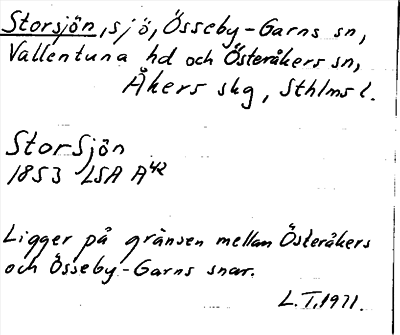 Storsjön, sjö, Össeby-Garns sn,
Vallentuna hd och Österåkers sn,
Åkers skg, Sthlms l.
StorSjön
1853 LSA A42
Ligger på gränsen mellan Österåkers
och Össeby-Garns snar.
L.T. 1971.